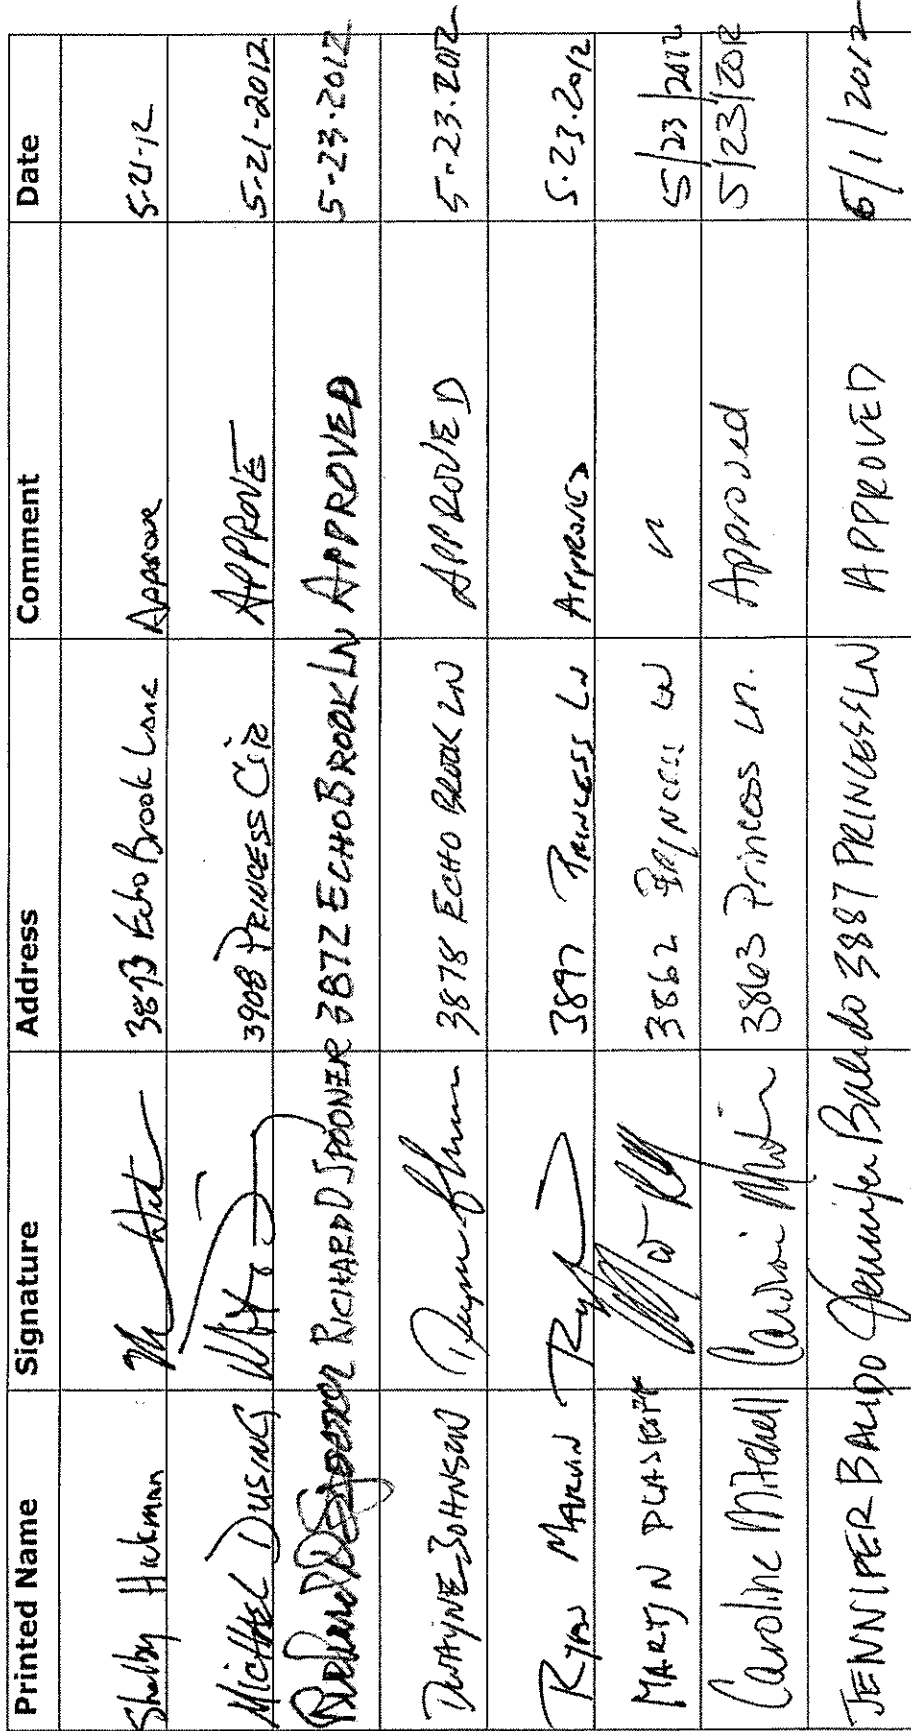 Printed Name Signature Address Comment Date
Shelby Hickman 3893 Echo Brook Lane Approve 5-21-12
Michael Dusing 3908 Princess Cir APPROVE 5-21-2012
RICHARD D SPOONER 3872 ECHO BROOK LN APPROVED 5-23-2012
DWAYNE JOHNSON 3878 ECHO BROOK LN APPROVED 5-23-2012
Ryan Marvin 3897 Princess LN Approved 5.23.2012
MARTYN 3862 Princess LN 〃 5/23/2012
Caroline Mitchell 3863 Princess Ln. Approved 5/23/2012
JENNIFER BALIDO Jennifer Balido 3887 PRINCESS LN APPROVED 6/1/2012